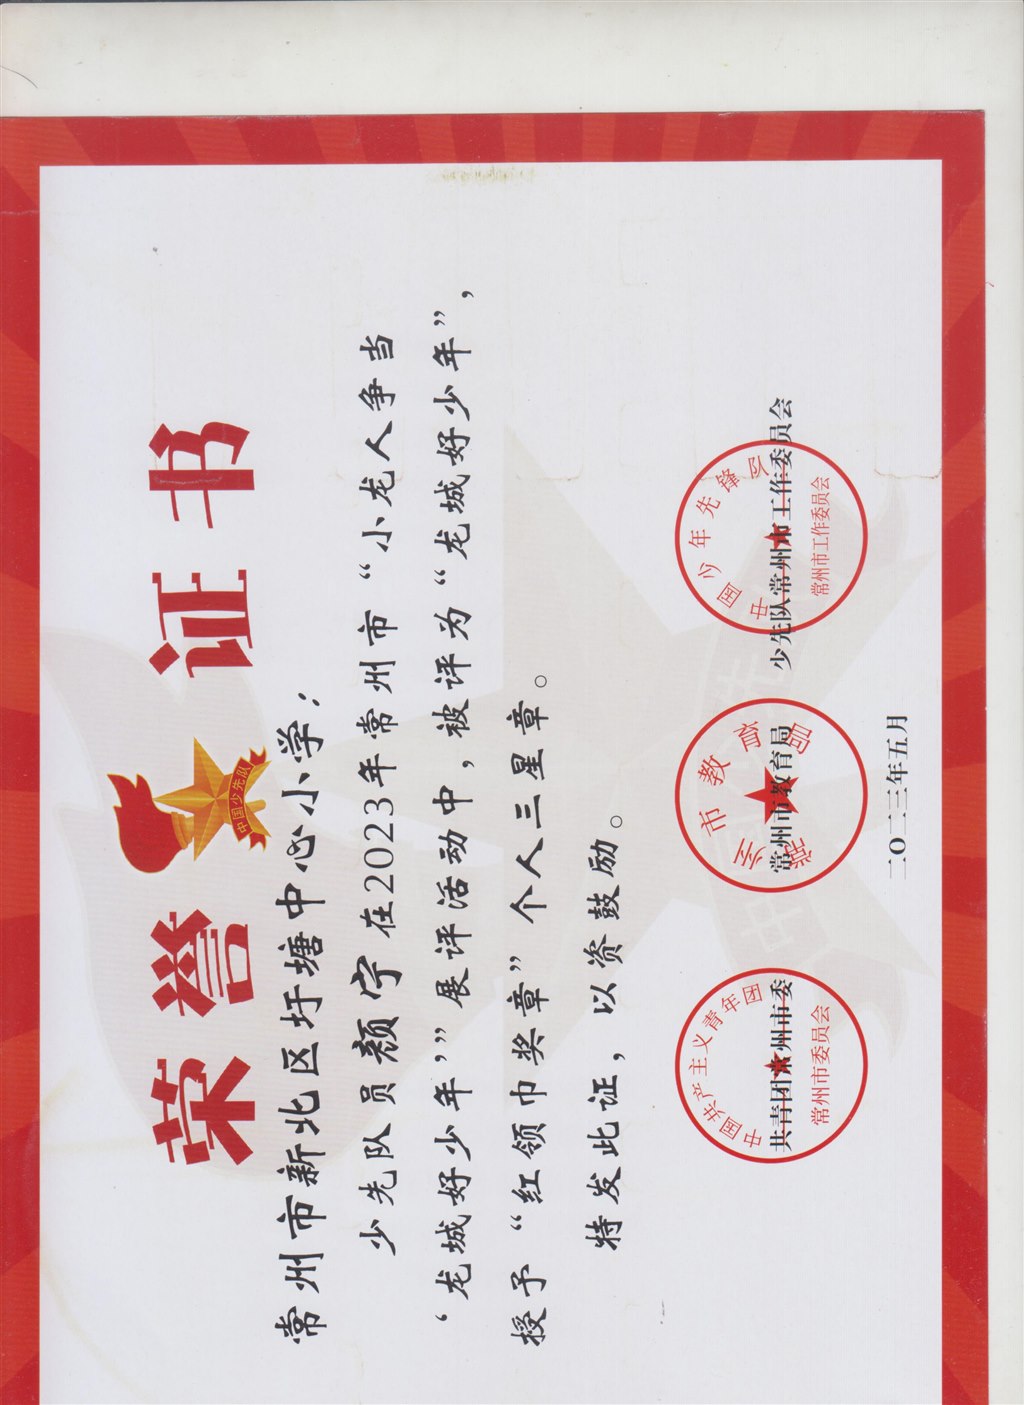 荣誉证书
中国少先队
常州市新北区圩塘中心小学：
少先队员颜宁在2023年常州市“小龙人争当
‘龙城好少年’”展评活动中，被评为“龙城好少年”，
授予“红领巾奖章”个人三星章。
特发此证，以资鼓励。
共青团常州市委 常州市教育局 少先队常州市工作委员会
中国共产主义青年团
常州市委员会
常州市教育局
中国少年先锋队
常州市工作委员会
二〇二三年五月